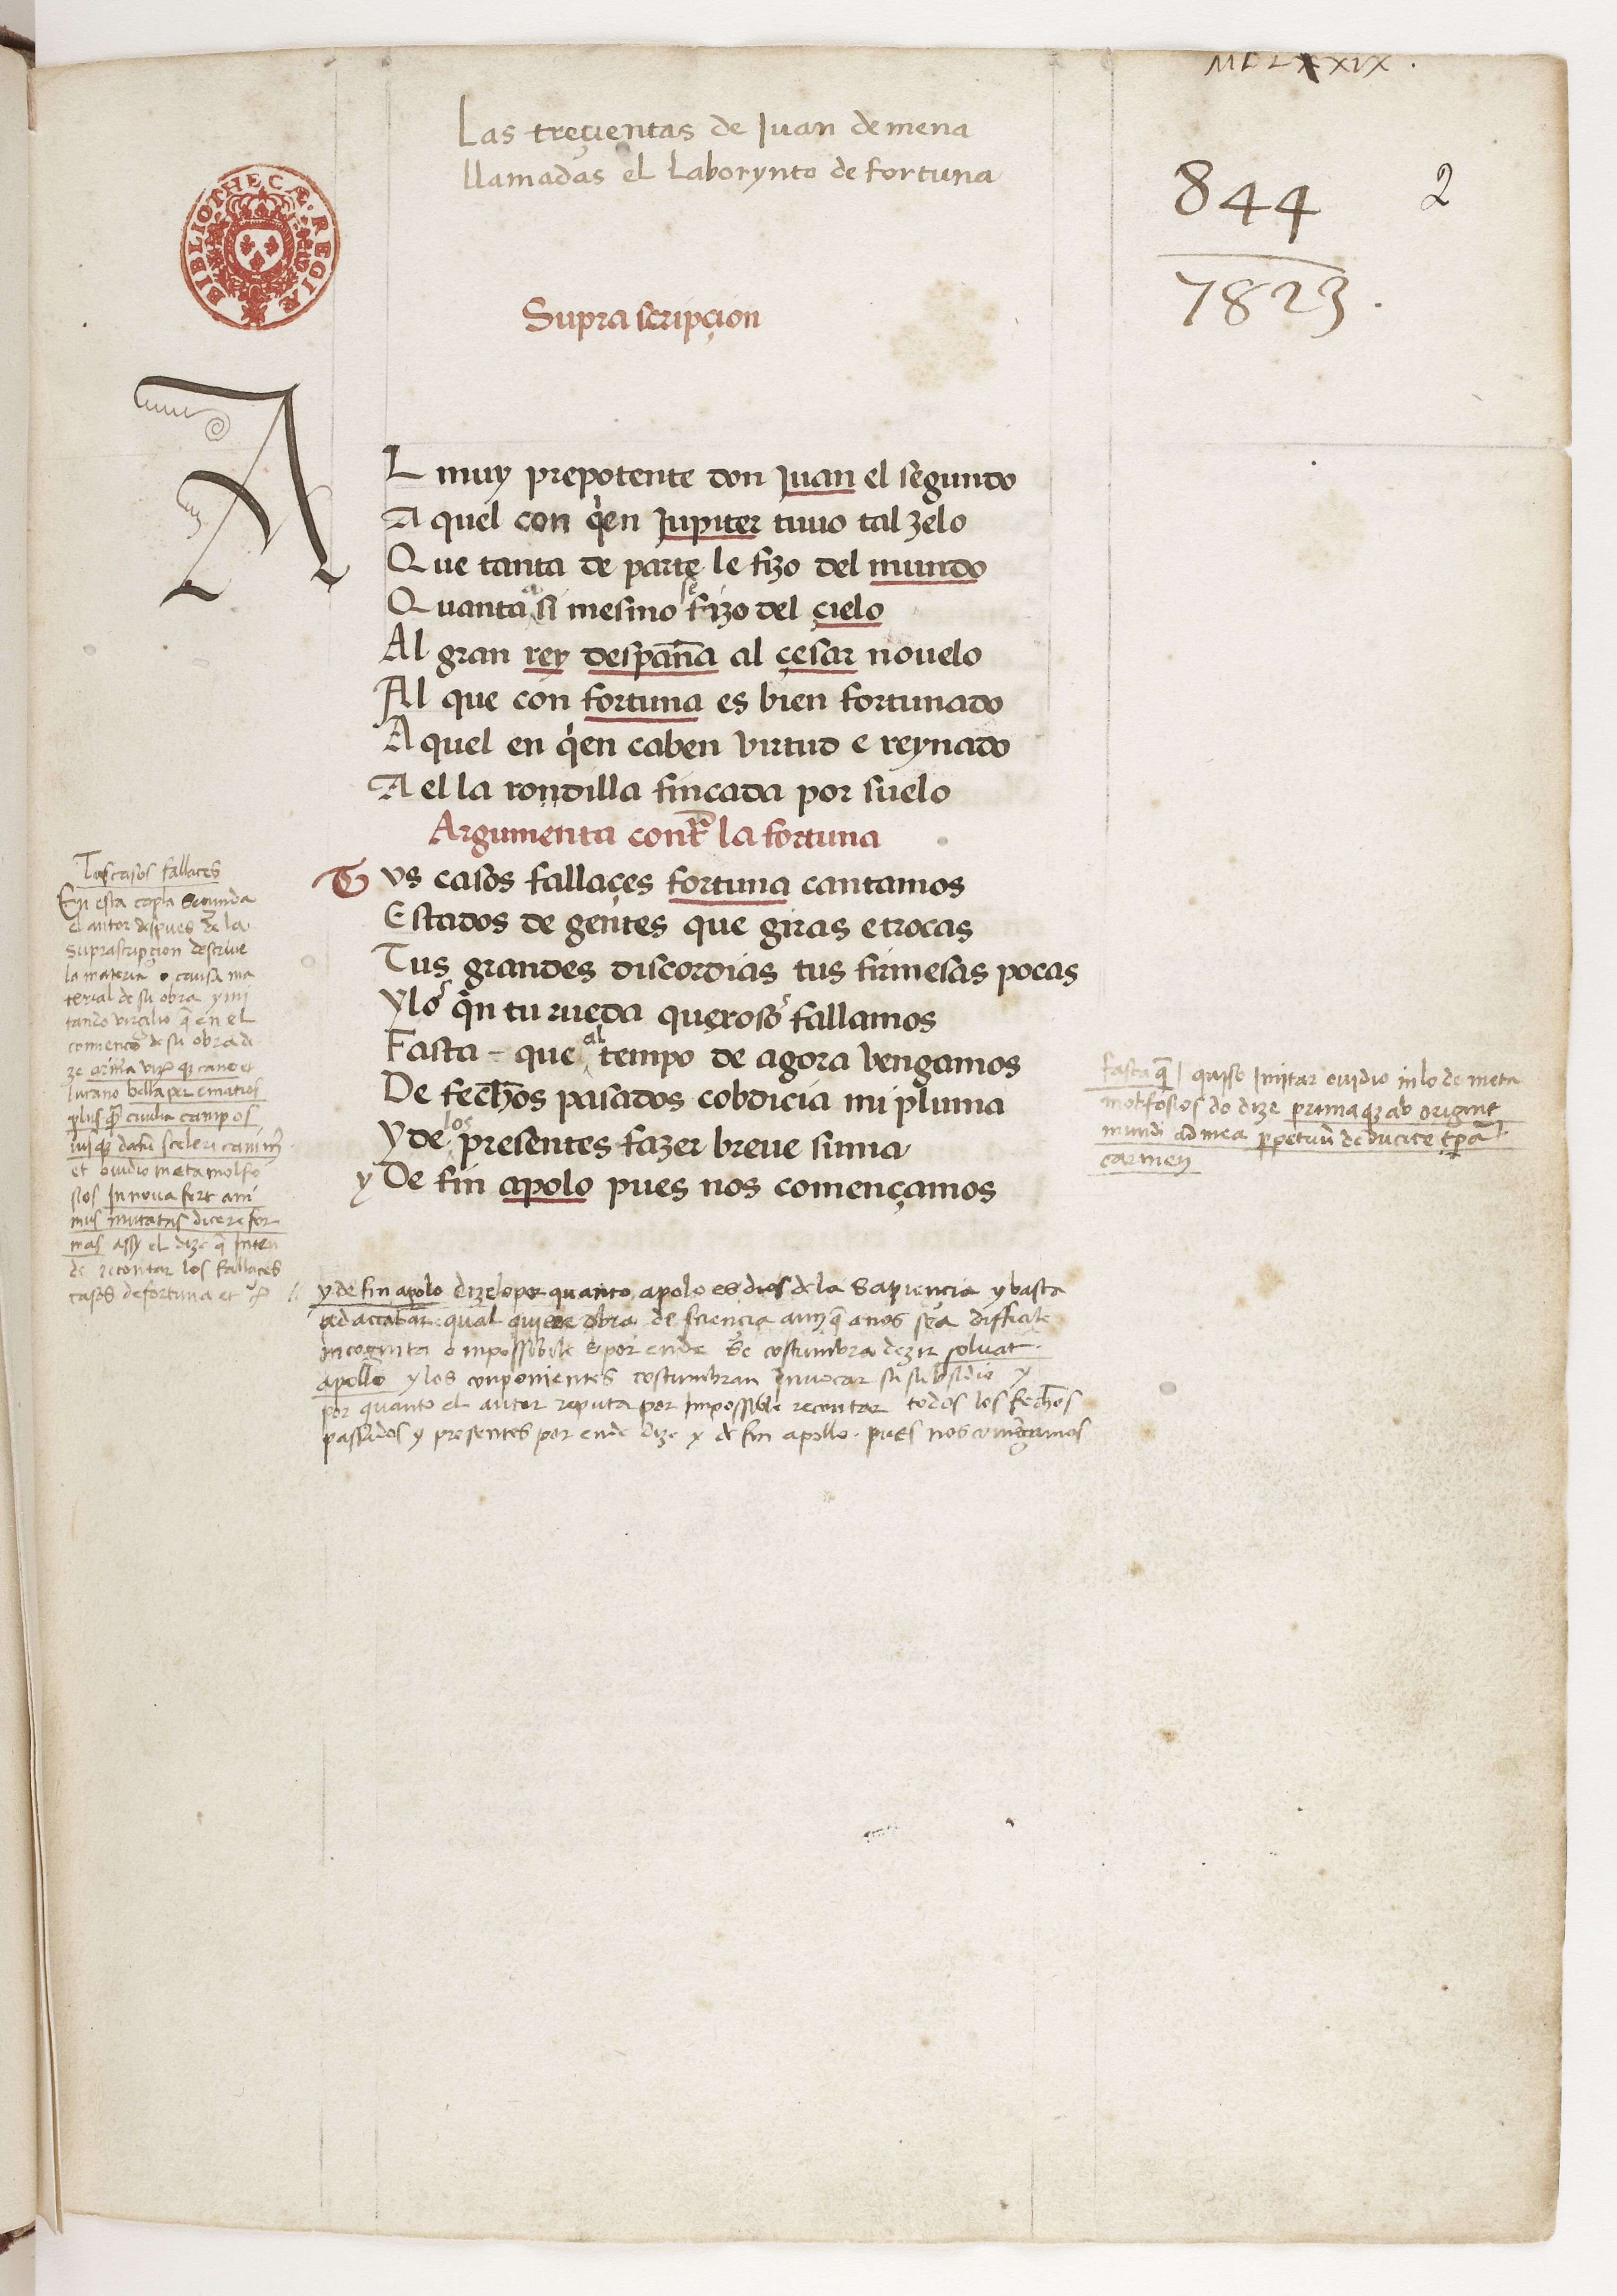 MCLXXXIX.
Las treçientas de Juan de mena
llamadas el Laborynto de fortuna
844
2
7823.
BIBLIOTHECÆ REGIÆ
Supra scripçion
A
L muy prepotente don Juan el segundo
A quel con q̇en Jupiter tuuo tal zelo
Que tanta de parte le fizo del mundo
Quanta a si mesmo se fizo del çielo
Al gran rey despan̄a al çesar nouelo
Al que con fortuna es bien fortunado
A quel en q̇en caben virtud e reynado
A el la rondilla fincada por suelo
Argumenta contra la fortuna
Tvs casos fallaçes fortuna cantamos
Estados de gentes que giras e trocas
Tus grandes discordias tus firmesas pocas
Y los q̄n tu rueda querosos fallamos
Fasta que al tempo de agora vengamos
De fechos pasados cobdicia mi pluma
Y de los presentes fazer breue suma
y De fin apolo pues nos començamos
Tus casos fallaces
En esta copla Segunda
el autor despues de la
Suprascripçion descriue
la materia o causa ma
terial de su obra ymi
tando virgilio q̄ en el
comenco de su obra di
ze arma virū q̄ cano et
lucano bella per ematios
plus q̄ ciuilia campos
iusq̄ datū sceleri canim̄
et ouidio metamolfo
sios In noua fert ani
mus mutatas dicere for
mas assy el dize q̄ Inten
de recontar los fallaces
casos de fortuna et
fasta q̄ / quiso Imitar ouidio in lo de meta
molfosios do dize primaq̄ ab origine
mundi ad mea perpetuū deducite tp̄a
carmen
y de fin apolo dizelo por quanto apolo es dios de la Sapiencia y basta
ad accabar qual quiere obra de sciençia aunq̄ a nos sea difficile
incognita o impossibile & por ende Se costumbra dezir soluat
apollo y los conponientes costumbran Inuocar su subsidio y
por quanto el autor reputa por Impossible recontar todos los fechos
passados y presentes por ende dize y de fin apollo. pues nos comēçamos